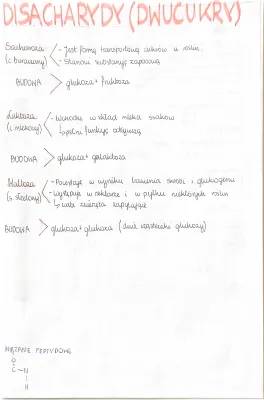 DISACHARYDY (DWUCUKRY)
Sacharoza
(c. buraczany)
- Jest formą transportową cukrów u roślin.
- Stanowi substancję zapasową
BUDOWA > glukoza + fruktoza
Laktoza
(c. mlekowy)
- Wchodzi w skład mleka ssaków
↳ pełni funkcję odżywczą
BUDOWA > glukoza + galaktoza
Maltoza
(c. słodowy)
- Powstaje w wyniku trawienia skrobi i glikogenu
- występuje w nektarze i w pyłku niektórych roślin
↳ wabi zwierzęta zapylające
BUDOWA > glukoza + glukoza (dwie cząsteczki glukozy)
WIĄZANIE PEPTYDOWE
O
C - N
H